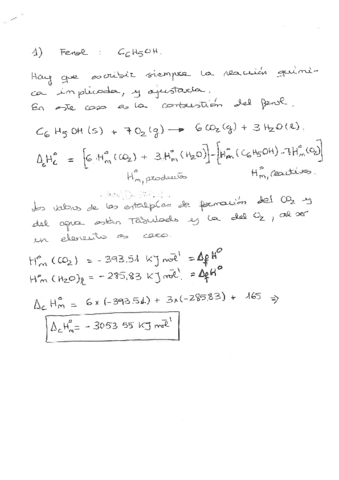 1) Fenol : C6H5OH.
Hay que escribir siempre la reacción quími-
ca implicada, y ajustarla.
En este caso es la combustión del fenol.
C6H5OH(s) + 7O2(g) → 6CO2(g) + 3H2O(l).
ΔcH°c = [6·H°m(CO2) + 3·H°m(H2O)] - [H°m(C6H5OH) - 7H°m(O2)]
H°m, productos H°m, reactivos.
Los valores de las entalpías de formación del CO2 y
del agua están tabulados y la del O2, al ser
un elemento es cero.
H°m(CO2) = -393.51 KJ mol⁻¹ = ΔfH°
H°m(H2O)l = -285,83 KJ mol⁻¹ = ΔfH°
ΔcH°m = 6x(-393.51) + 3x(-285,83) + 165 ⇒
ΔcH°m = -3053 55 KJ mol⁻¹